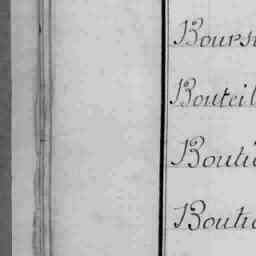 Bours
Bouteil
Bouti
Bouti